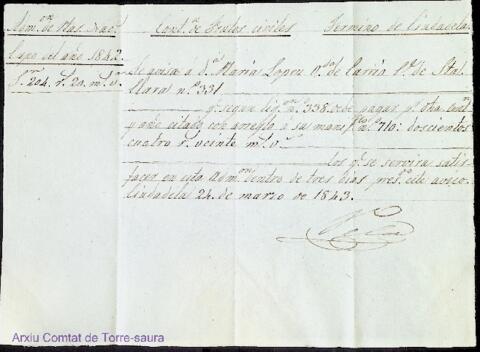 Adm.on de Ntas. Nac.s Cont.n de Frutos civiles Termino de Ciudadela
Cupo del año 1842
S.n 204. r.s 20. m.s v.n
Se avisa a D.a Maria Lopez V.da de Carrió C.e de Sta.
Clara n.º 331
q.e segun liq.on n.º 338. debe pagar pr. dha. Cont.n
y año citado con arreglo á su manif.to n.º 710: doscientos
cuatro r.s veinte m.s v.n
los q.e se servirá satis
facer en esta Adm.on dentro de tres dias pres.do este aviso.
Ciudadela 24 de marzo de 1843.
Arxiu Comtat de Torre-saura